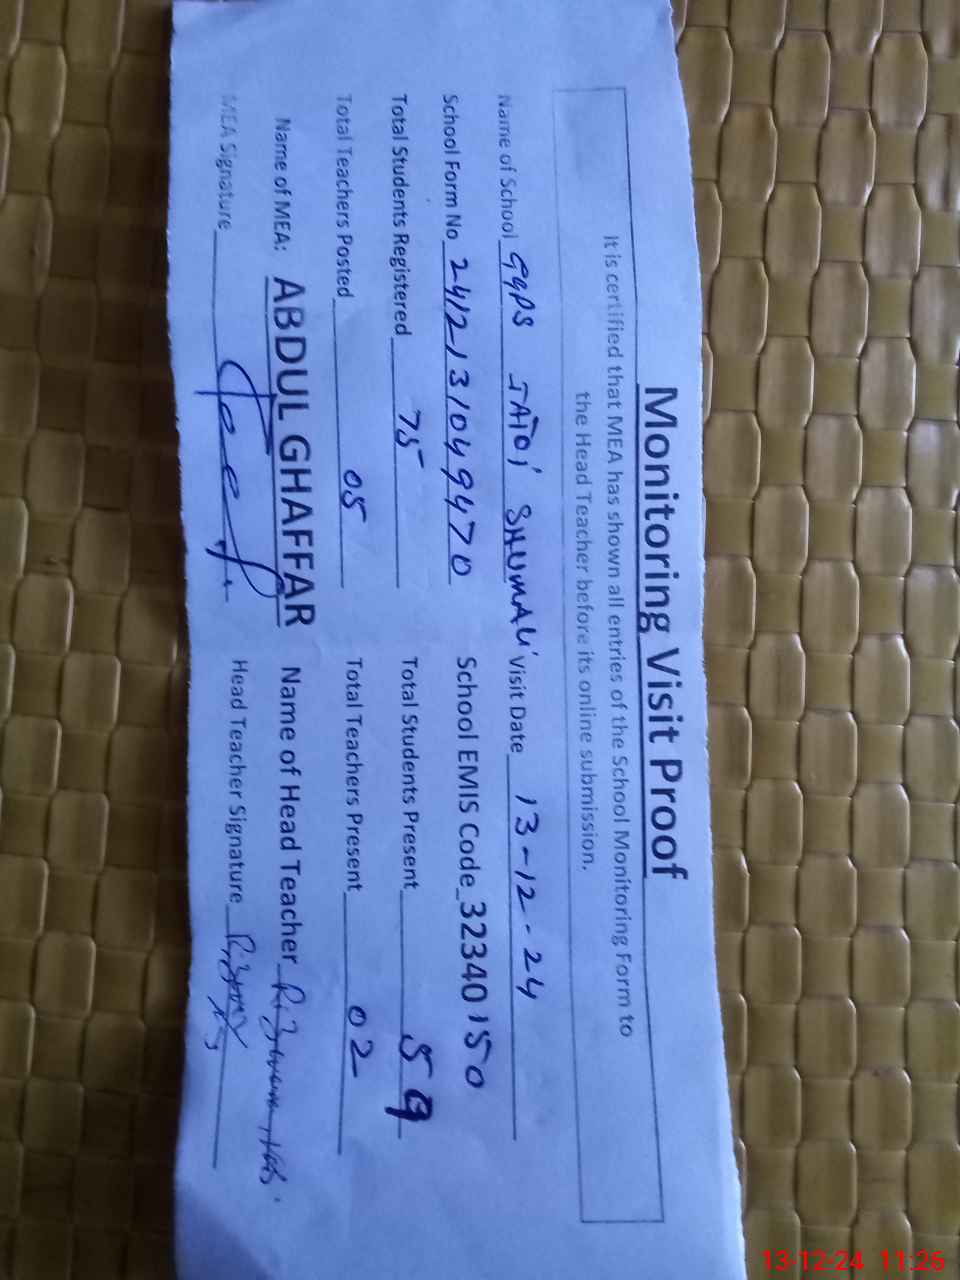 Monitoring Visit Proof
It is certified that MEA has shown all entries of the School Monitoring Form to
the Head Teacher before its online submission.
Name of School GGPS JATOI SHUMALI Visit Date 13-12-24
School Form No 2412-131049470 School EMIS Code 32340150
Total Students Registered 75 Total Students Present 59
Total Teachers Posted 05 Total Teachers Present 02
Name of MEA: ABDUL GHAFFAR Name of Head Teacher
MEA Signature Head Teacher Signature
13-12-24 11:26